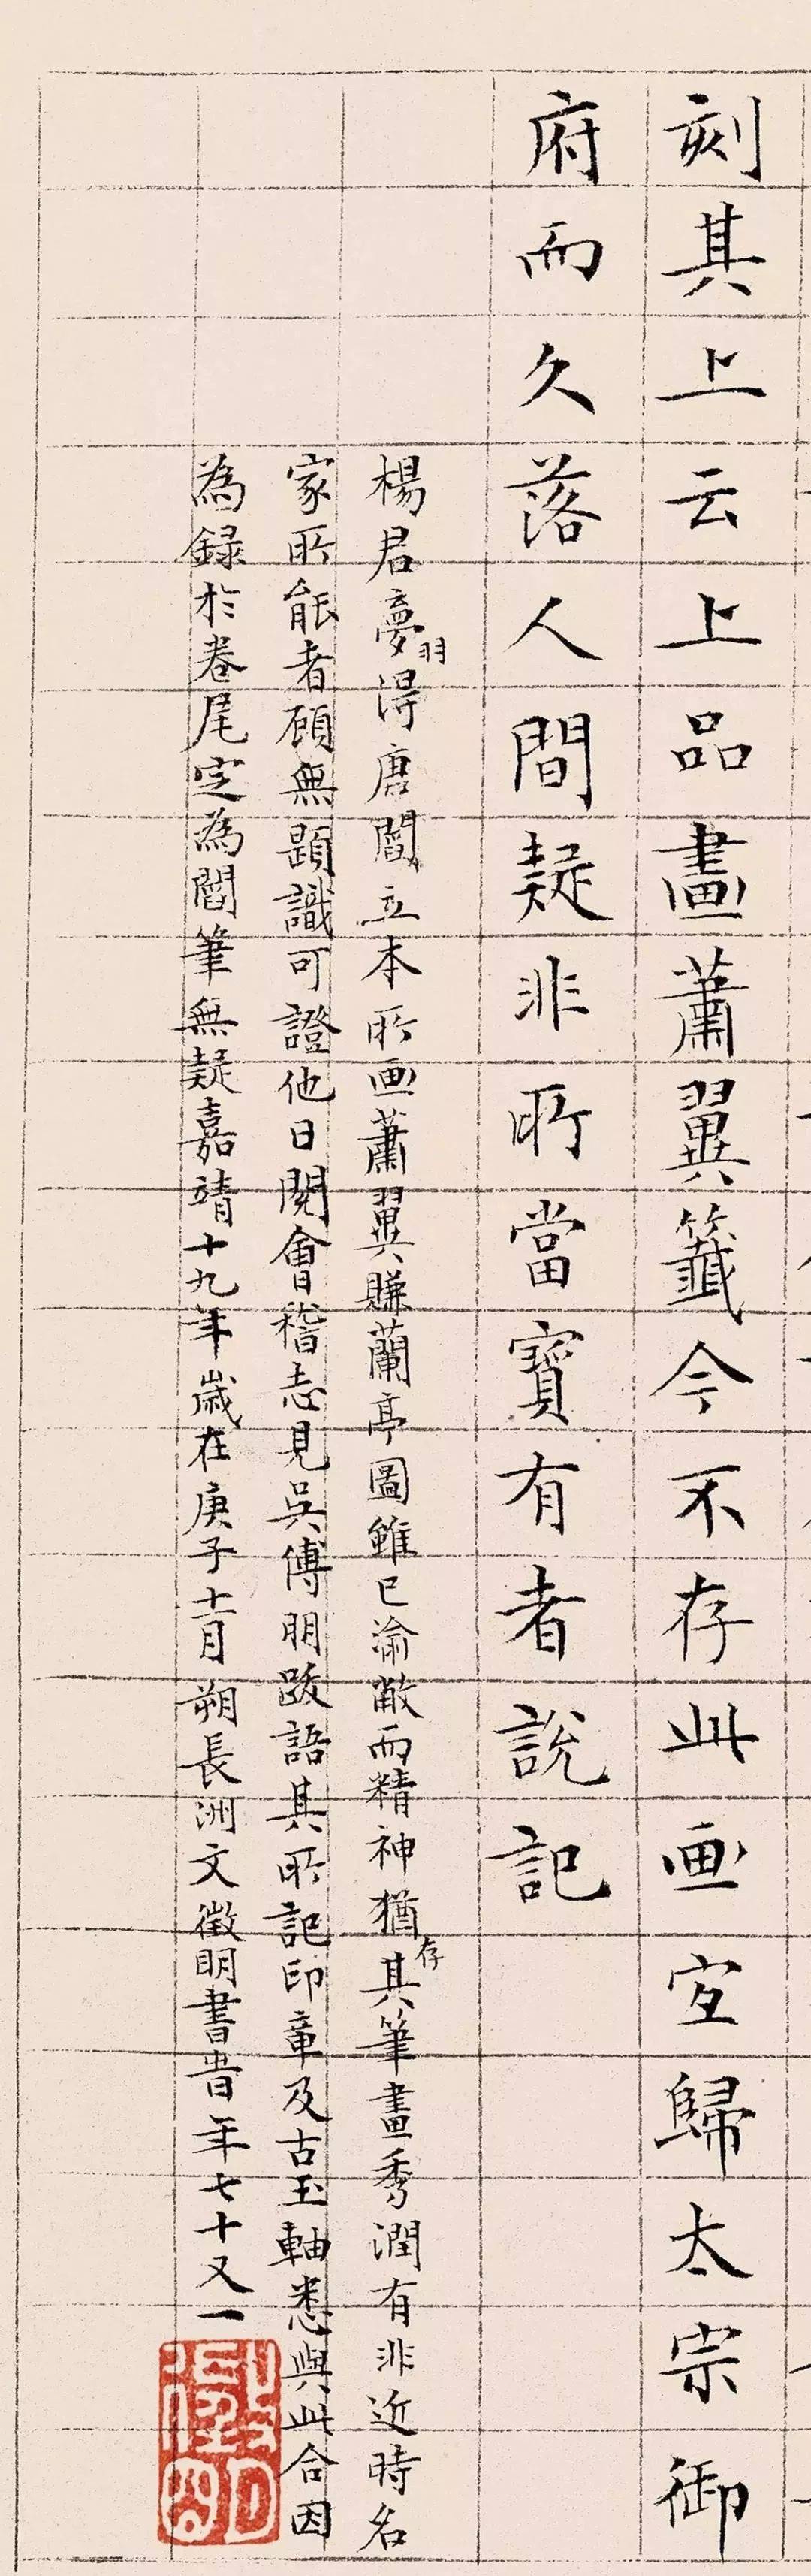 刻其上云上品畫蕭翼籤今不存此画宜歸太宗御
府而久落人間疑非所當寶有者説記
楊君夢羽得唐閻立本所画蕭翼賺蘭亭圖雖已渝敝而精神猶存其筆畫秀潤有非近時名
家所能者顧無題識可證他日閱會稽志見吳傅朋跋語其所記印章及古玉軸悉與此合因
為錄於卷尾定為閻筆無疑嘉靖十九年歲在庚子十一月朔長洲文徵明書旹年七十又一
徵明